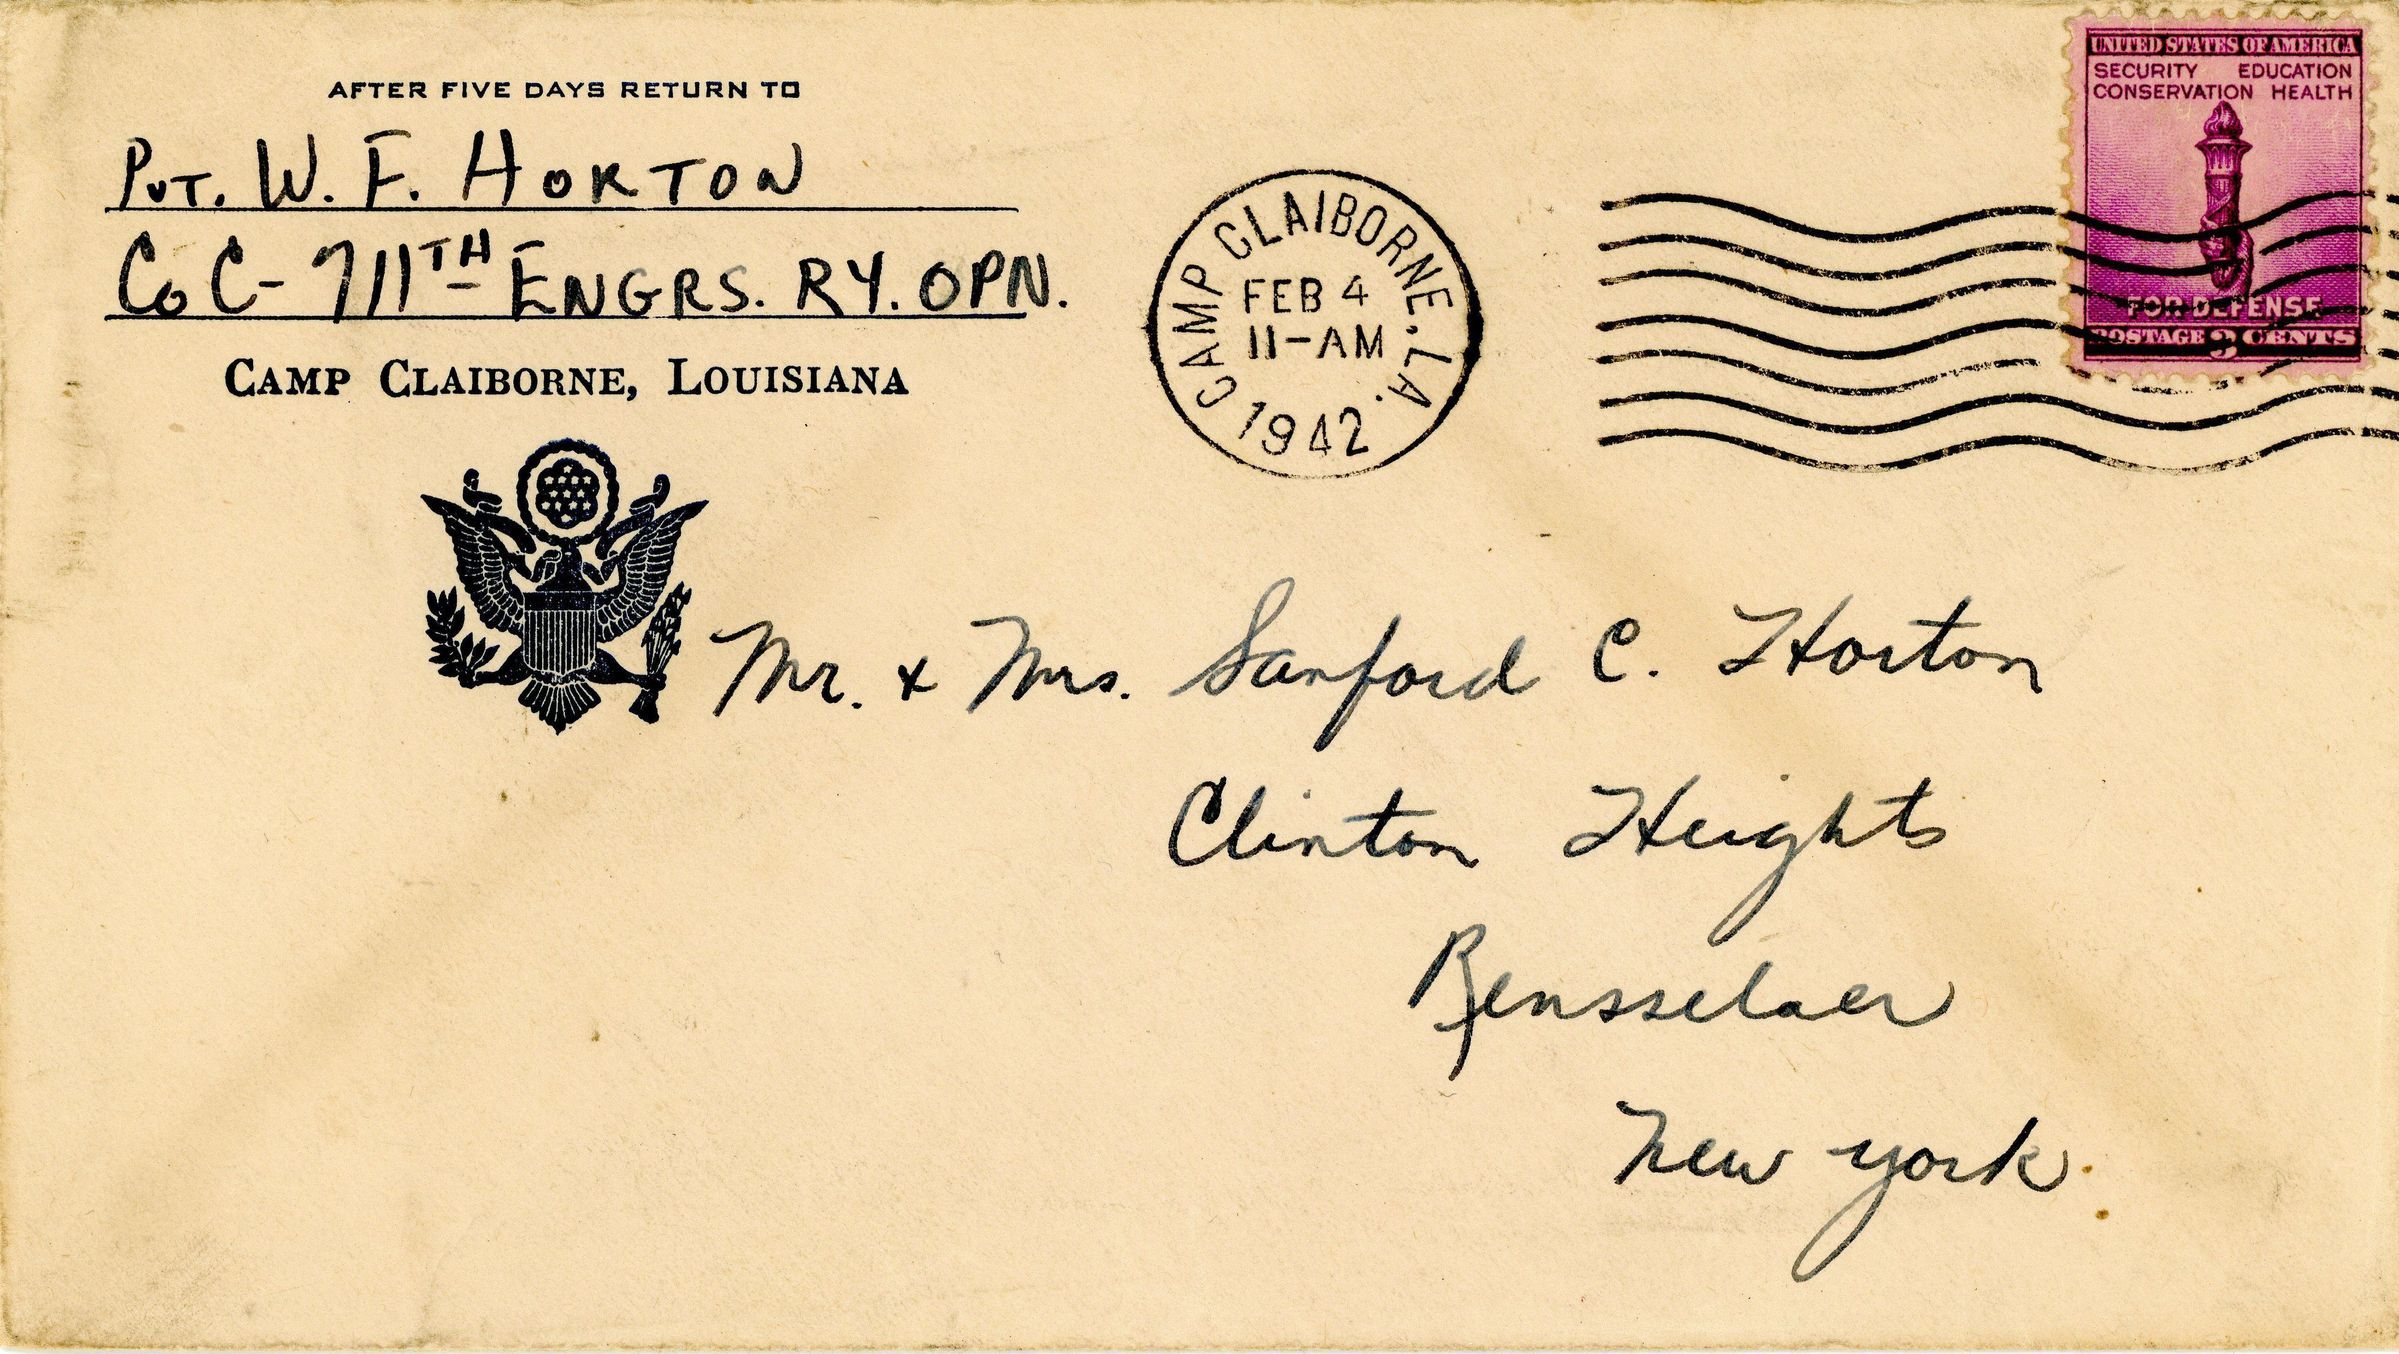 AFTER FIVE DAYS RETURN TO
PVT. W. F. HORTON
Co C- 711TH ENGRS. RY. OPN.
CAMP CLAIBORNE, LOUISIANA
CAMP CLAIBORNE, LA.
FEB 4
11-AM
1942
UNITED STATES OF AMERICA
SECURITY EDUCATION
CONSERVATION HEALTH
FOR DEFENSE
POSTAGE 3 CENTS
Mr. & Mrs. Sanford C. Horton
Clinton Heights
Rensselaer
New York